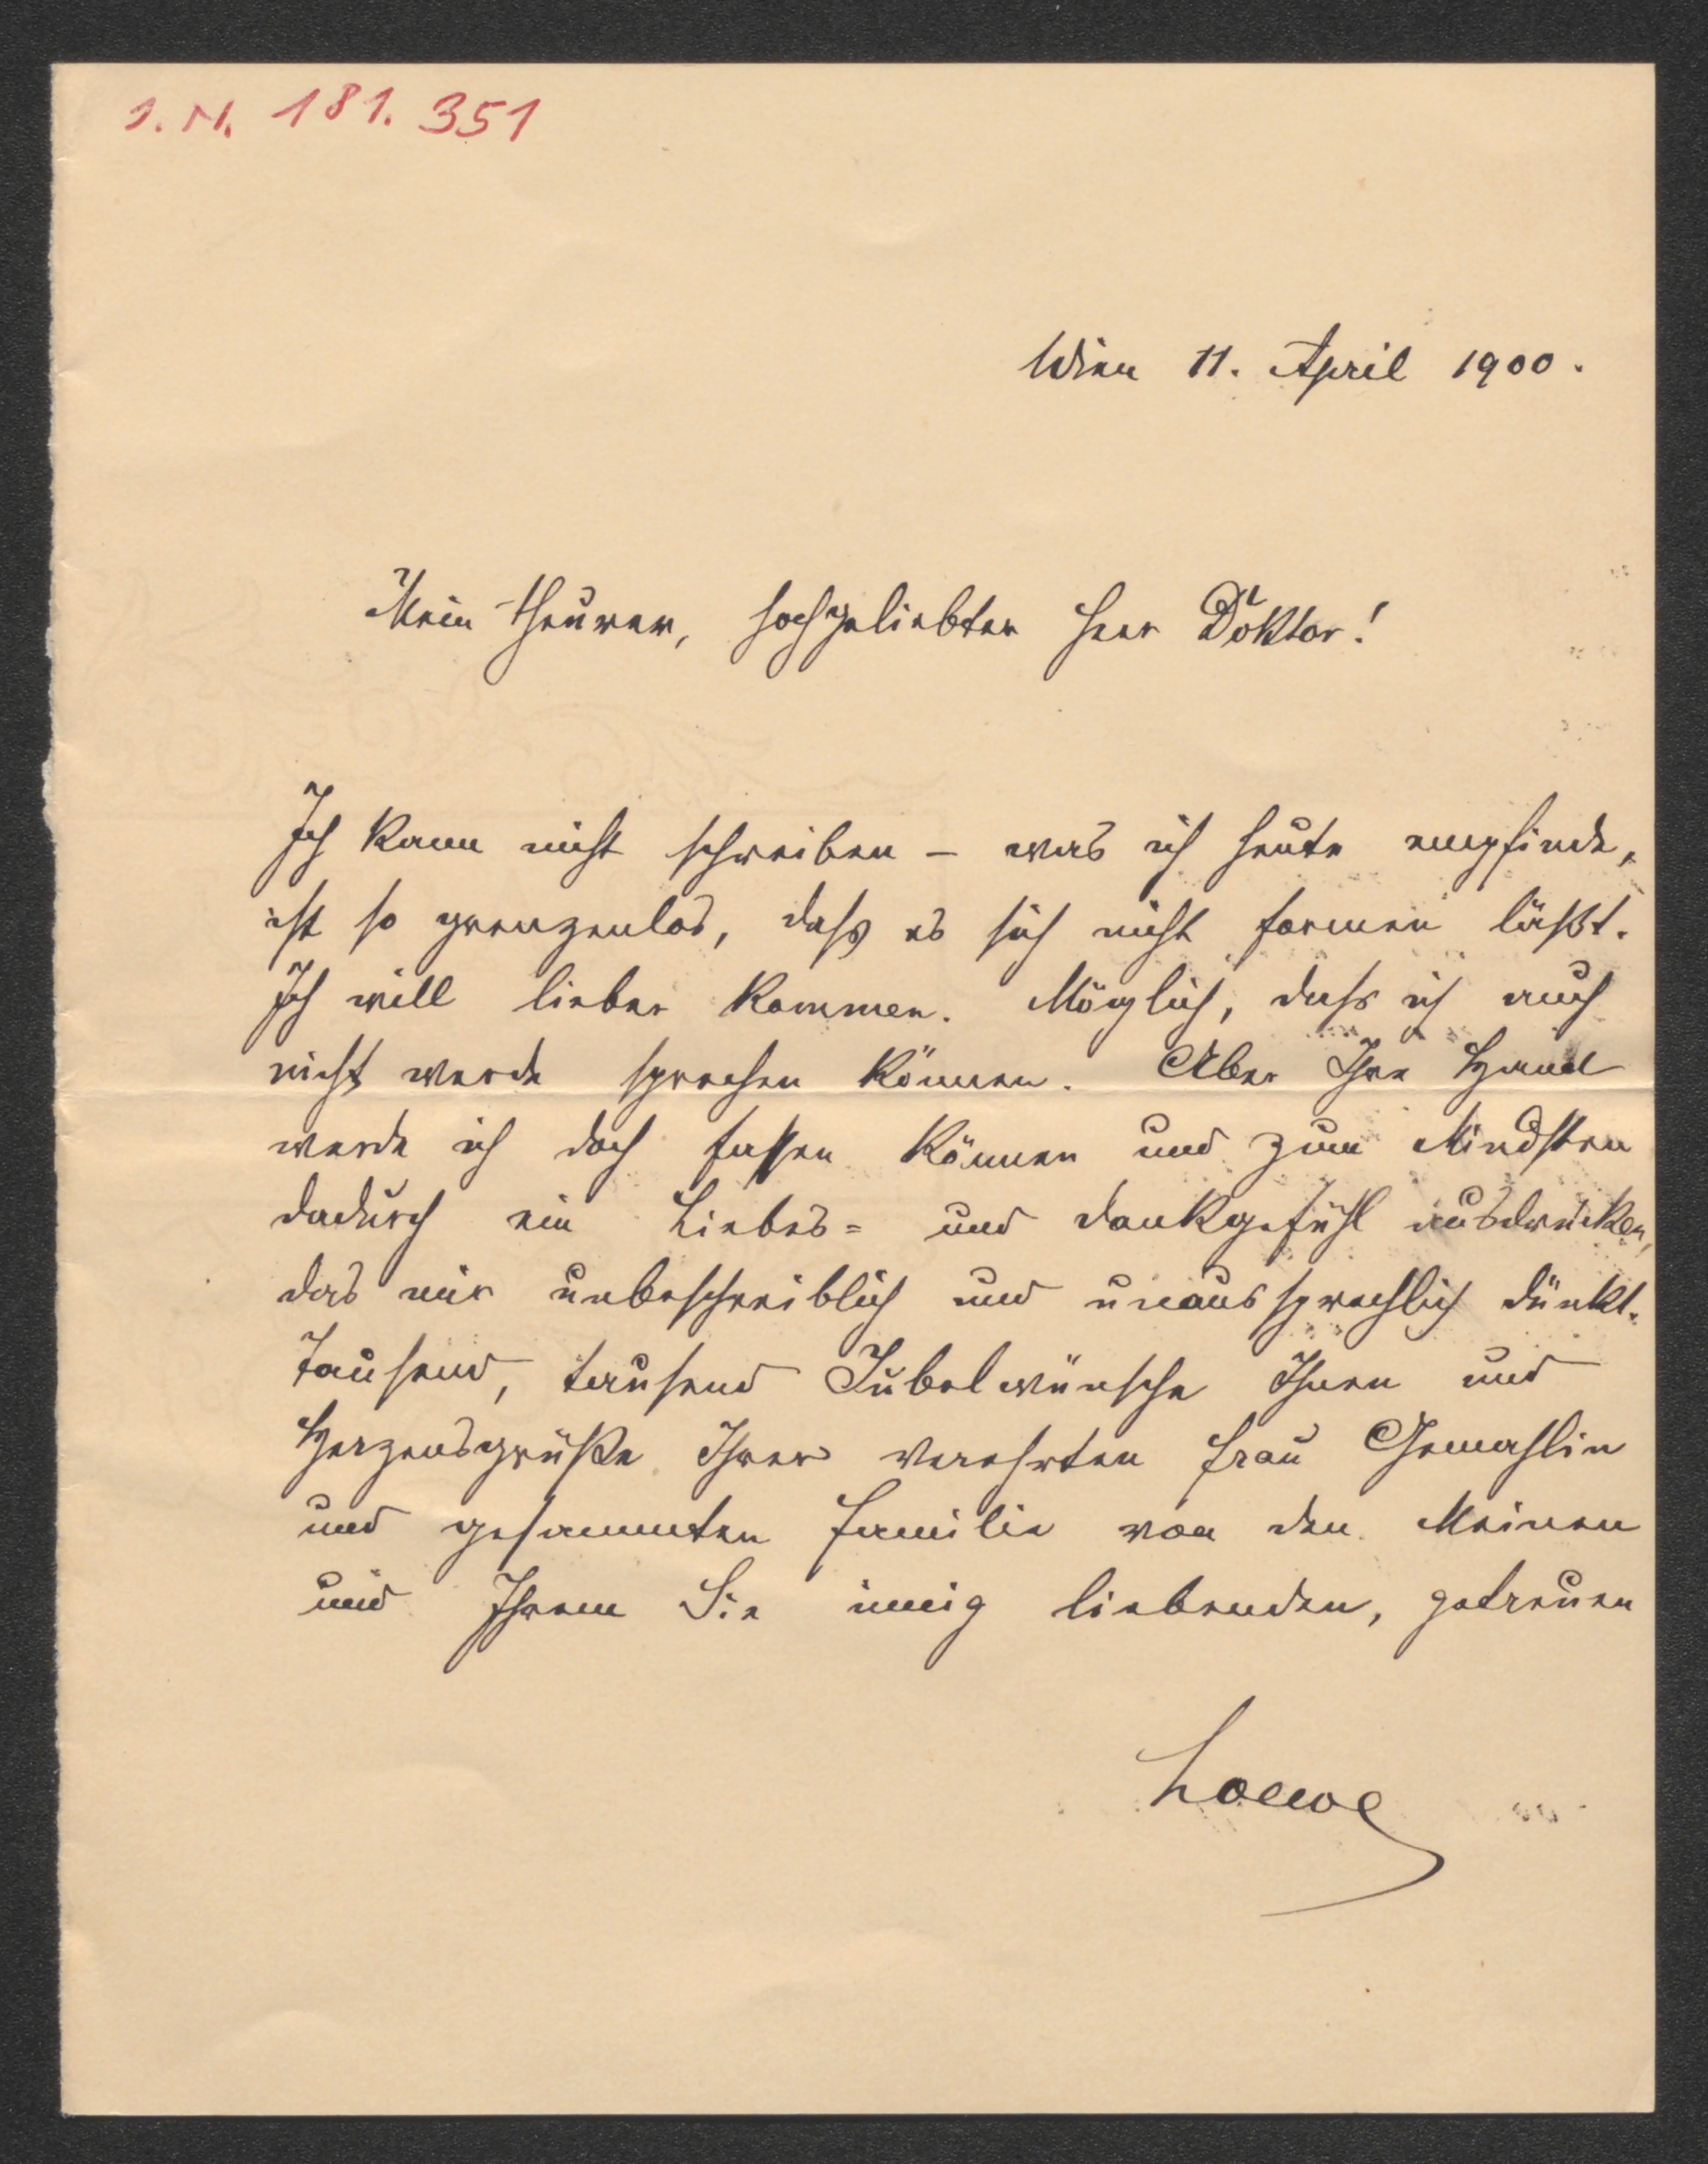 I. N. 181. 351
Wien 11. April 1900.
Mein theurer, hochgeliebter Herr Doktor!
Ich kann nicht schreiben – was ich heute empfinde,
ist so grenzenlos, dass es sich nicht formen läßt.
Ich will lieber kommen. Möglich, dass ich auch
nicht werde sprechen können. Aber Ihre Hand
werde ich doch fassen können und zum Mindsten
dadurch ein Liebes= und Dankgefühl ausdrücken,
das mir unbeschreiblich und unaussprechlich dünkt.
Tausend, tausend Jubelwünsche Ihnen und
Herzensgrüße Ihrer verehrten Frau Gemahlin
und gesammten Familie von den Meinen
und Ihrem Sie innig liebenden, getreuen
Loewe